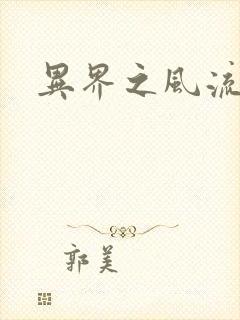 異界之風流
郭美